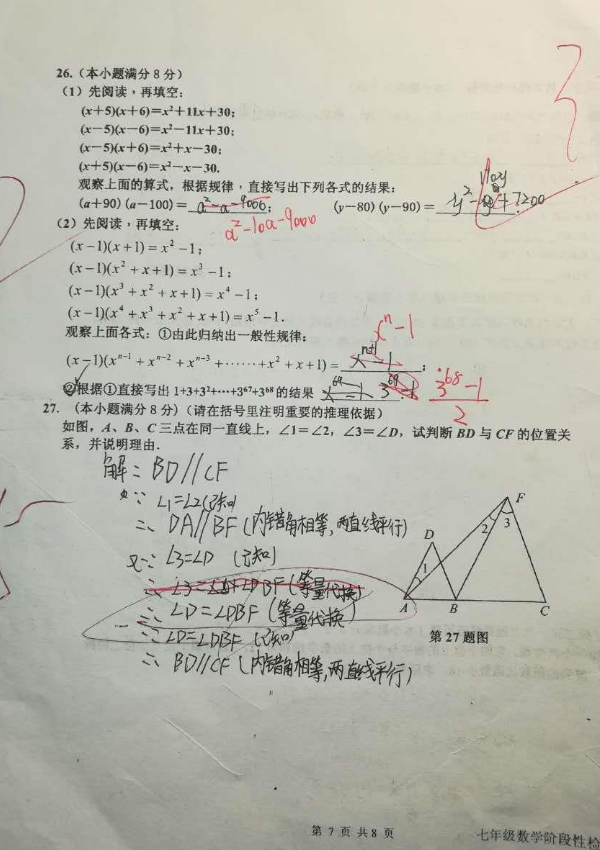 26.(本小题满分 8 分)
(1)先阅读,再填空:
(x+5)(x+6)=x²+11x+30;
(x−5)(x−6)=x²−11x+30;
(x−5)(x+6)=x²+x−30;
(x+5)(x−6)=x²−x−30.
观察上面的算式,根据规律,直接写出下列各式的结果:
(a+90)(a−100)= a²−a−9000; (y−80)(y−90)= y²− +7200
a²−10a−9000
(2)先阅读,再填空:
(x−1)(x+1)=x²−1;
(x−1)(x²+x+1)=x³−1;
(x−1)(x³+x²+x+1)=x⁴−1;
(x−1)(x⁴+x³+x²+x+1)=x⁵−1.
观察上面各式:①由此归纳出一般性规律:
xⁿ−1
(x−1)(xⁿ⁻¹+xⁿ⁻²+xⁿ⁻³+……+x²+x+1)= xⁿ⁺¹−1;
②根据①直接写出 1+3+3²+…+3⁶⁷+3⁶⁸的结果 x⁶⁹−1 3⁶⁹−1. 3⁶⁸−1/2
27. (本小题满分 8 分)(请在括号里注明重要的推理依据)
如图,A、B、C 三点在同一直线上,∠1=∠2,∠3=∠D,试判断 BD 与 CF 的位置关
系,并说明理由.
解:BD//CF
∵ ∠1=∠2(已知)
∴ DA//BF(内错角相等,两直线平行)
又∵ ∠3=∠D (已知)
∴ ∠D=∠DBF(等量代换)
∴ ∠D=∠DBF(已知)
∴ BD//CF(内错角相等,两直线平行)
F
2
3
D
1
A
B
C
第 27 题图
第 7 页 共 8 页
七年级数学阶段性检